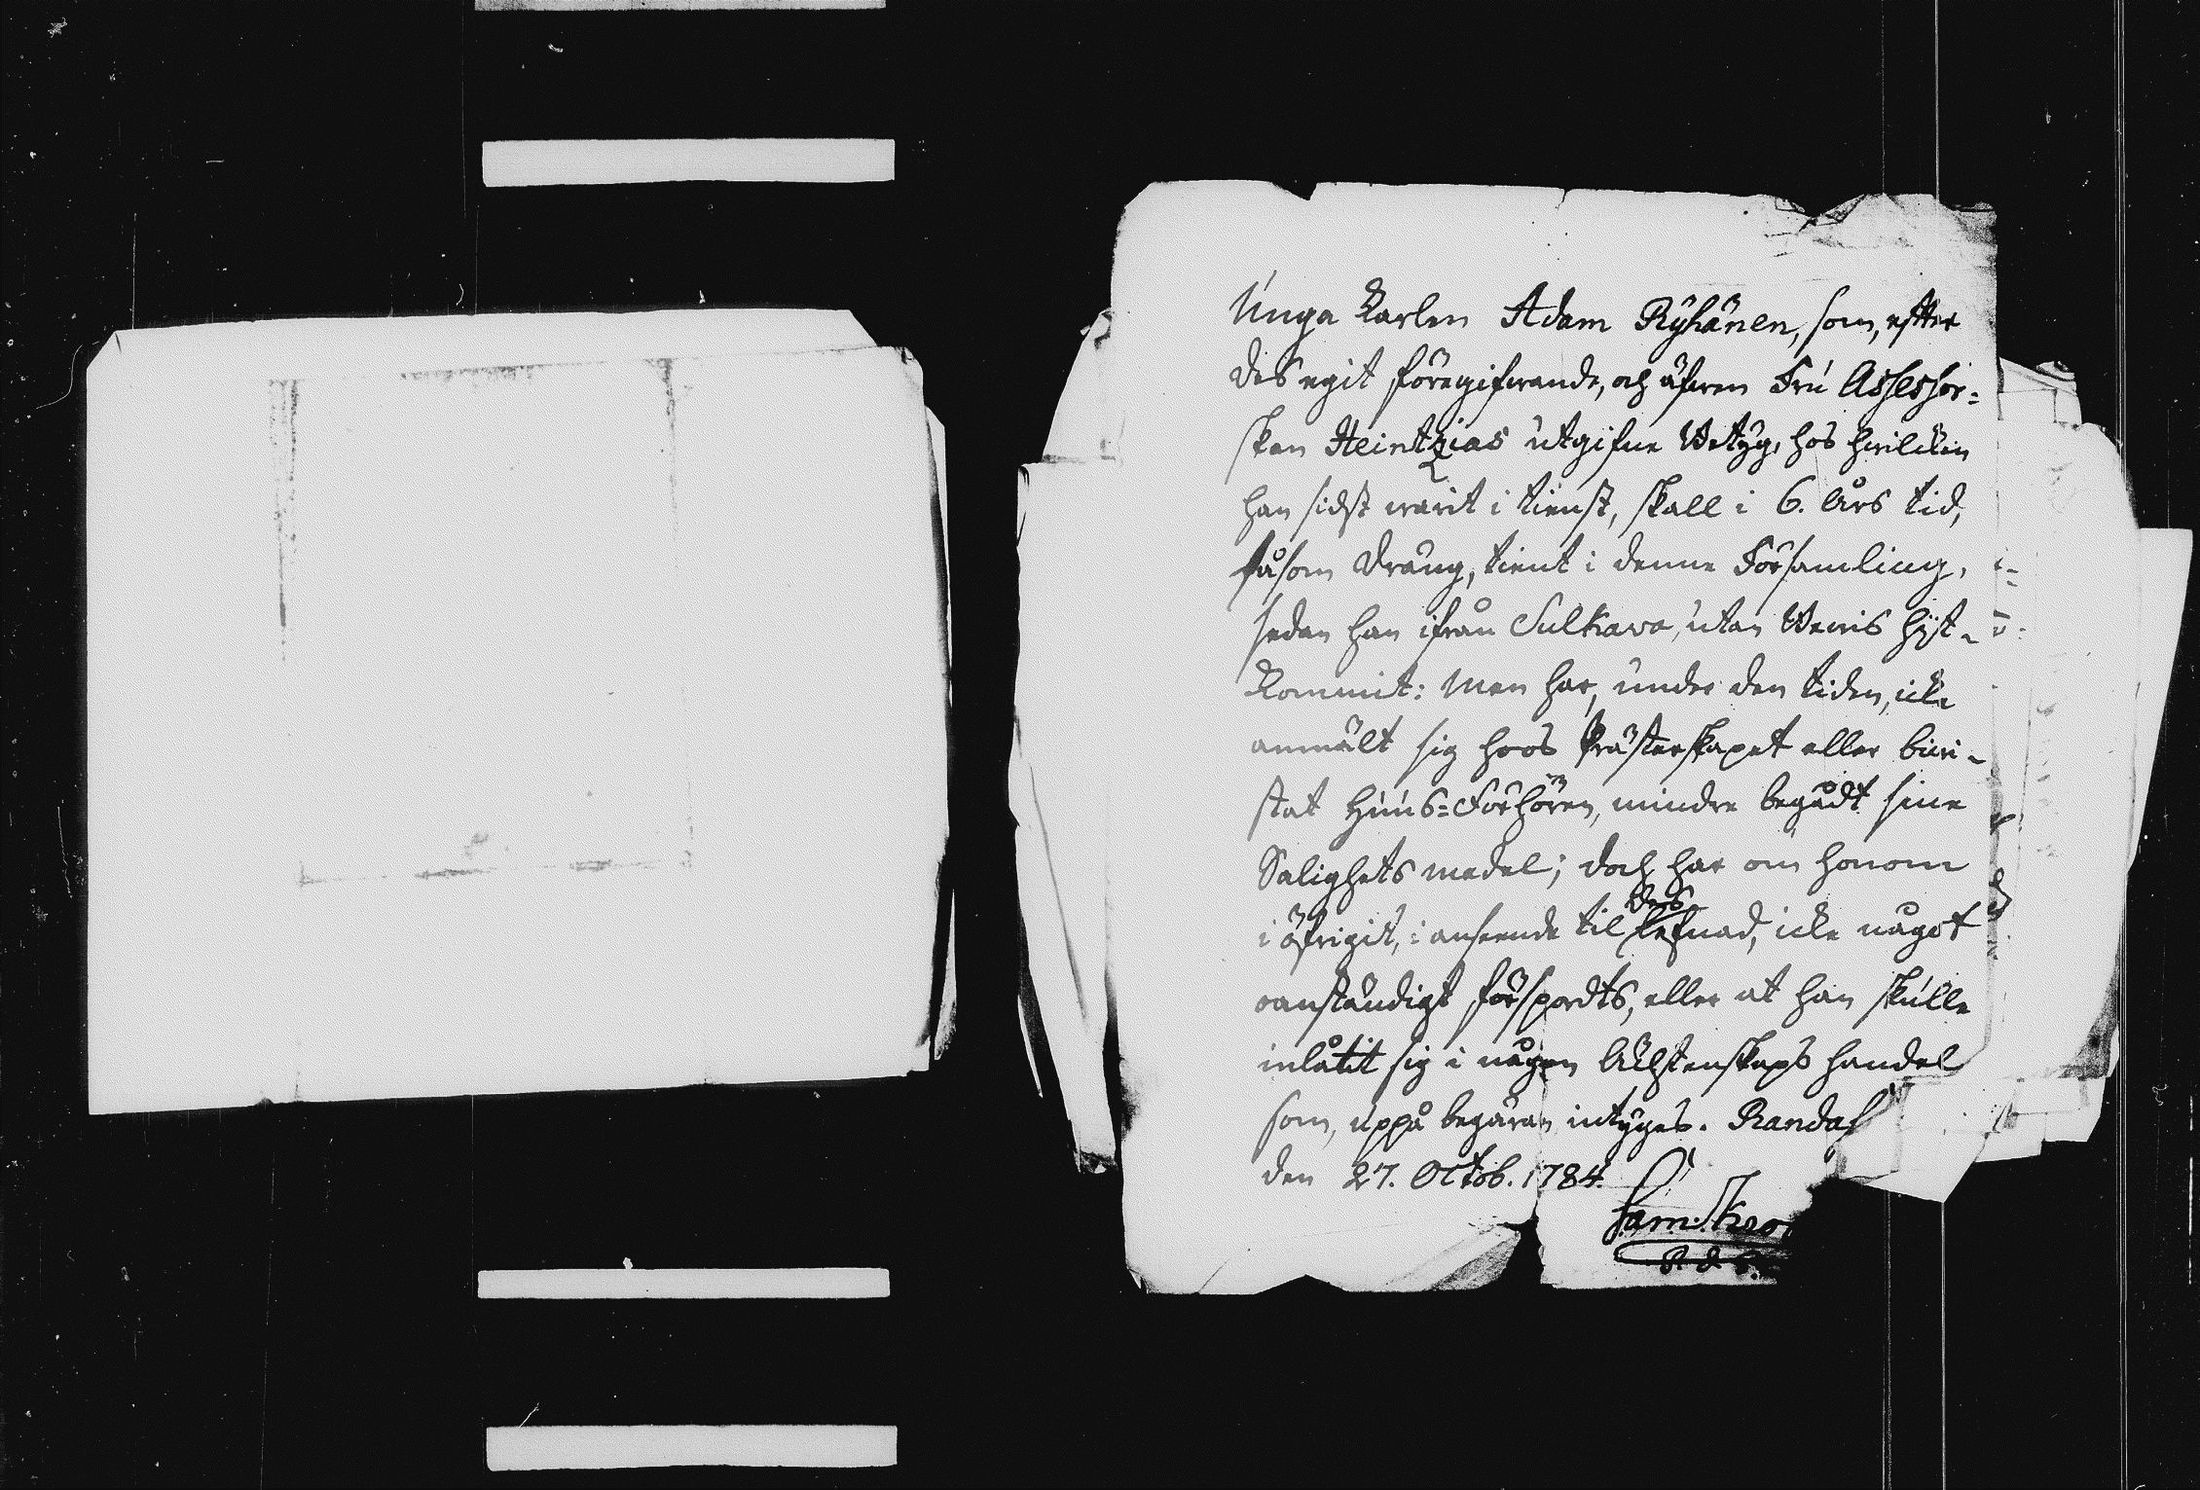 Unga Karlen Adam Ryhänen, som, efter
des egit föregifwande, och äfwen Fru Assessor=
skan Heintzias utgifne Betyg, hos hwilcken
han sidst warit i tienst, skall i 6. Års tid,
såsom Dräng, tient i denne Församling,
sedan han ifrån Sulkawa, utan Bewis hijt-
kommit: Men har, under den tiden, icke
anmält sig hoos Prästerskapet eller biwi-
stat Huus=Förhören, mindre begådt sine
Salighets medel; doch har om honom
i öfrigit, i anseende til des lefnad, icke något
oanständigt försports, eller at han skulle
inlåtit sig i någon Ächtenskaps handel
som, uppå begäran intyges. Randas
den 27. Octob. 1784.
Sam: Kro